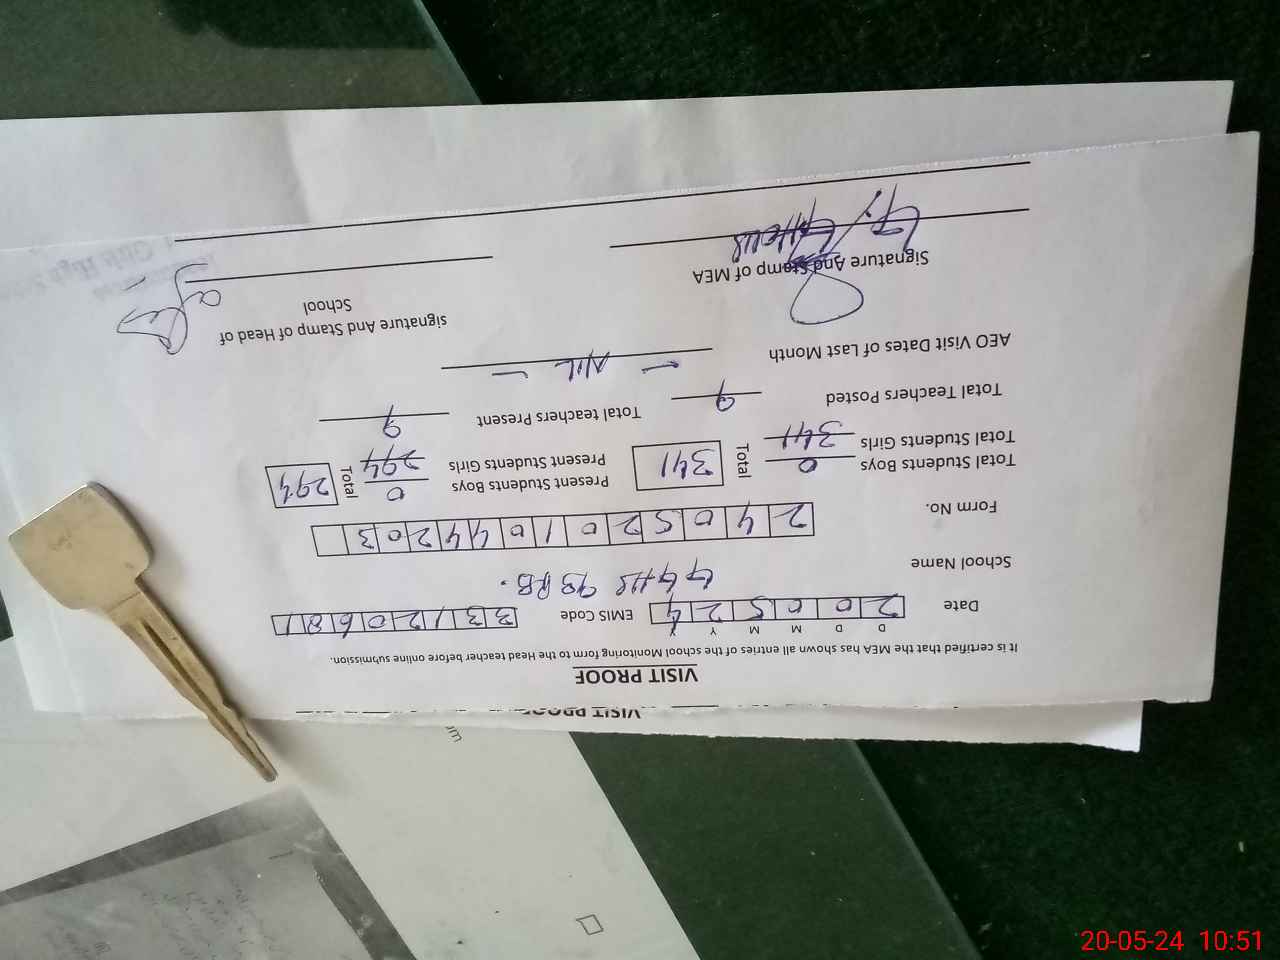 VISIT PROOF
VISIT PROOF
It is certified that the MEA has shown all entries of the school Monitoring form to the Head teacher before online submission.
D D M M Y Y
Date 20 05 24 EMIS Code 33120681
School Name GGHS 93 RB.
Form No. 2405201044203
Total Students Boys 0 Total 341 Present Students Boys 0 Total 294
Total Students Girls 341 Present Students Girls 294
Total Teachers Posted 9 Total teachers Present 9
AEO Visit Dates of Last Month — NIL —
Signature And Stamp of MEA
signature And Stamp of Head of School
20-05-24 10:51